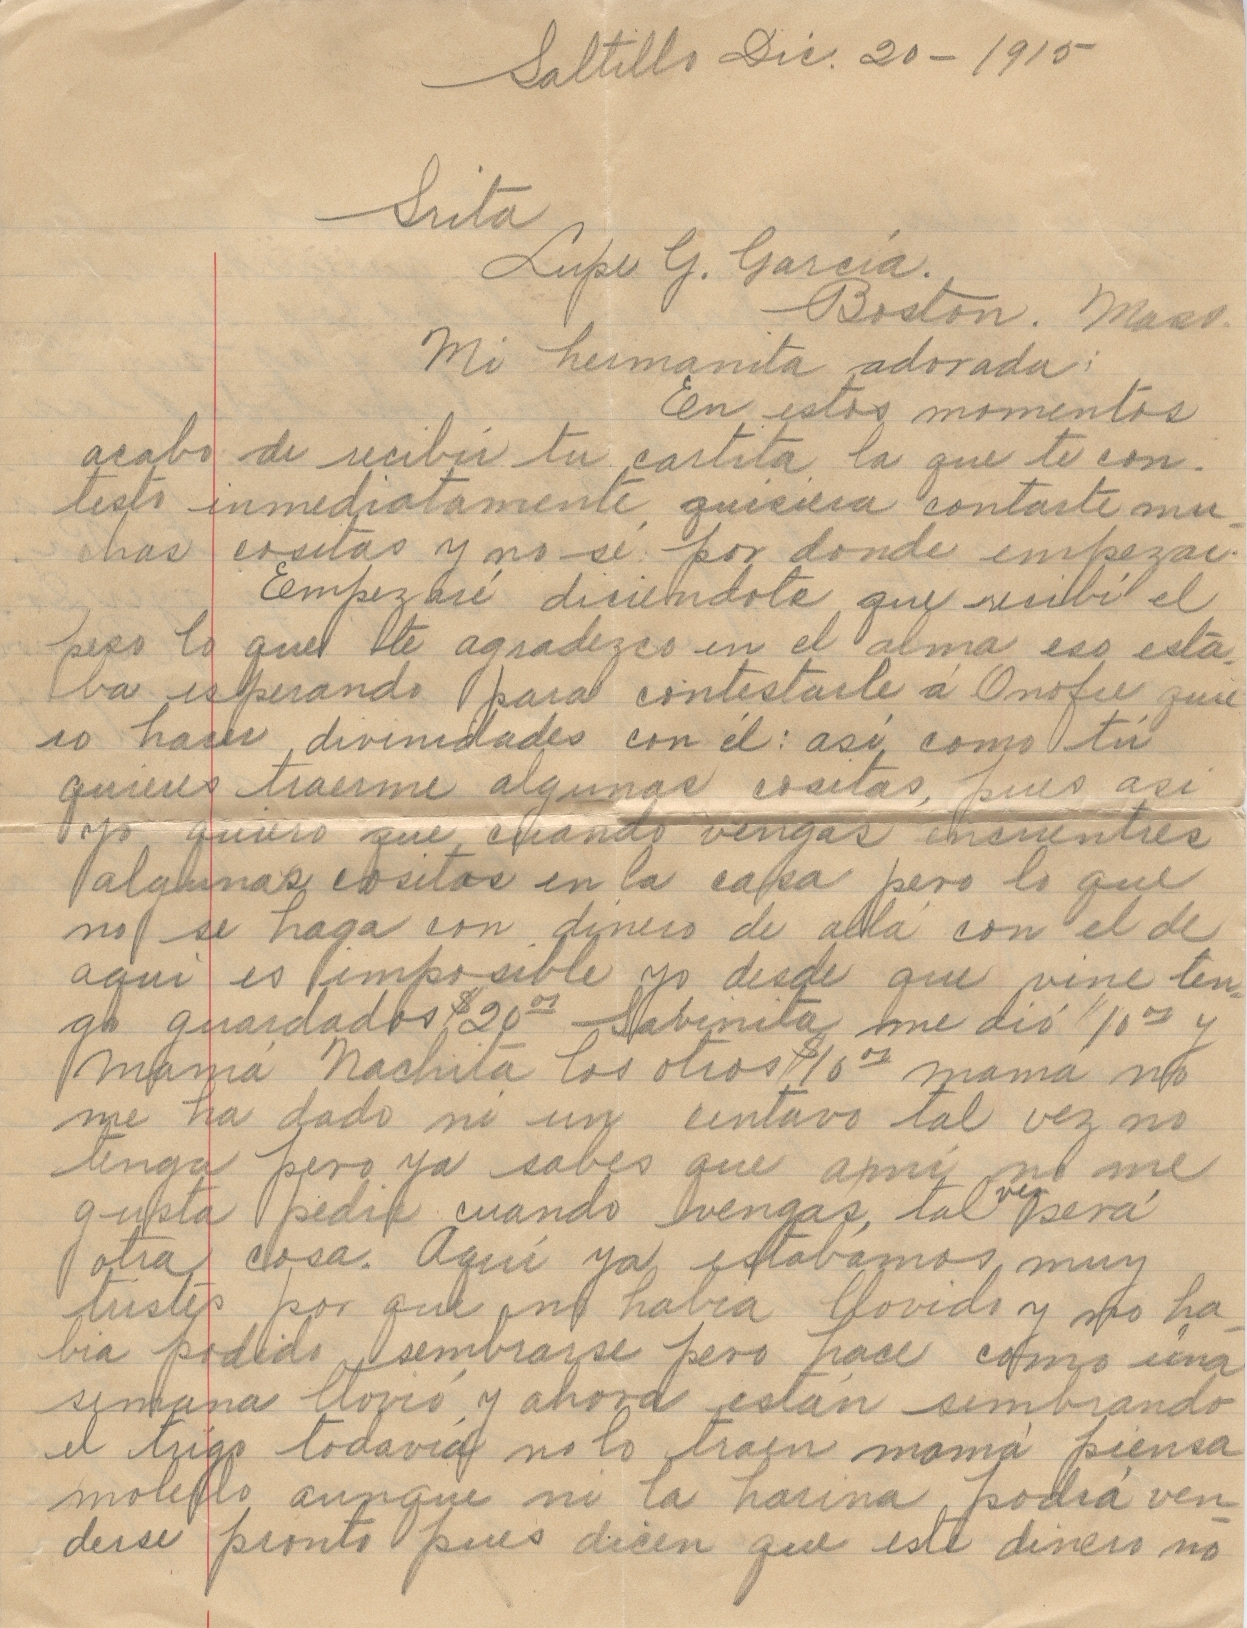 Saltillo Dic. 20 - 1915
Srita
Lupe G. García.
Boston. Mass.
Mi hermanita adorada:
En estos momentos
acabo de recibir tu cartita la que te con-
testo inmediatamente, quisiera contarte mu-
chas cositas y no sé por donde empezar.
Eempezaré diciendote que recibí el
peso lo que te agradezco en el alma eso esta-
ba esperando para contestarle á Onofre quie
ro hacer divinidades con él: así como tú
quieres traerme algunas cositas, pues asi
yo quiero que cuando vengas encuentres
algunas cositas en la casa pero lo que
no se haga con dinero de allá con el de
aqui es imposible yo desde que vine ten-
go guardados $20 00 Sabinita me dió "10 00 y
Mamá Nachita los otros $10 00 mamá no
me ha dado ni un centavo tal vez no
tenga pero ya sabes que ami no me
gusta pedir cuando vengas, tal vez será
otra cosa. Aquí ya estabamos muy
tristes por que no habia llovido y no ha-
bia podido sembrarse pero hace como una
semana llovió y ahora están sembrando
el trigo todavía no lo traen mamá piensa
molerlo aunque ni la harina podrá ven-
derse pronto pues dicen que este dinero no